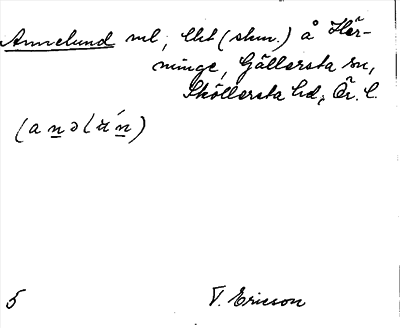 Annelund ml, lht (skm.) å Här-
ninge, Gällersta sn,
Sköllersta hd, Ör. l.
(a n ə l ú n)
5 T. Ericson